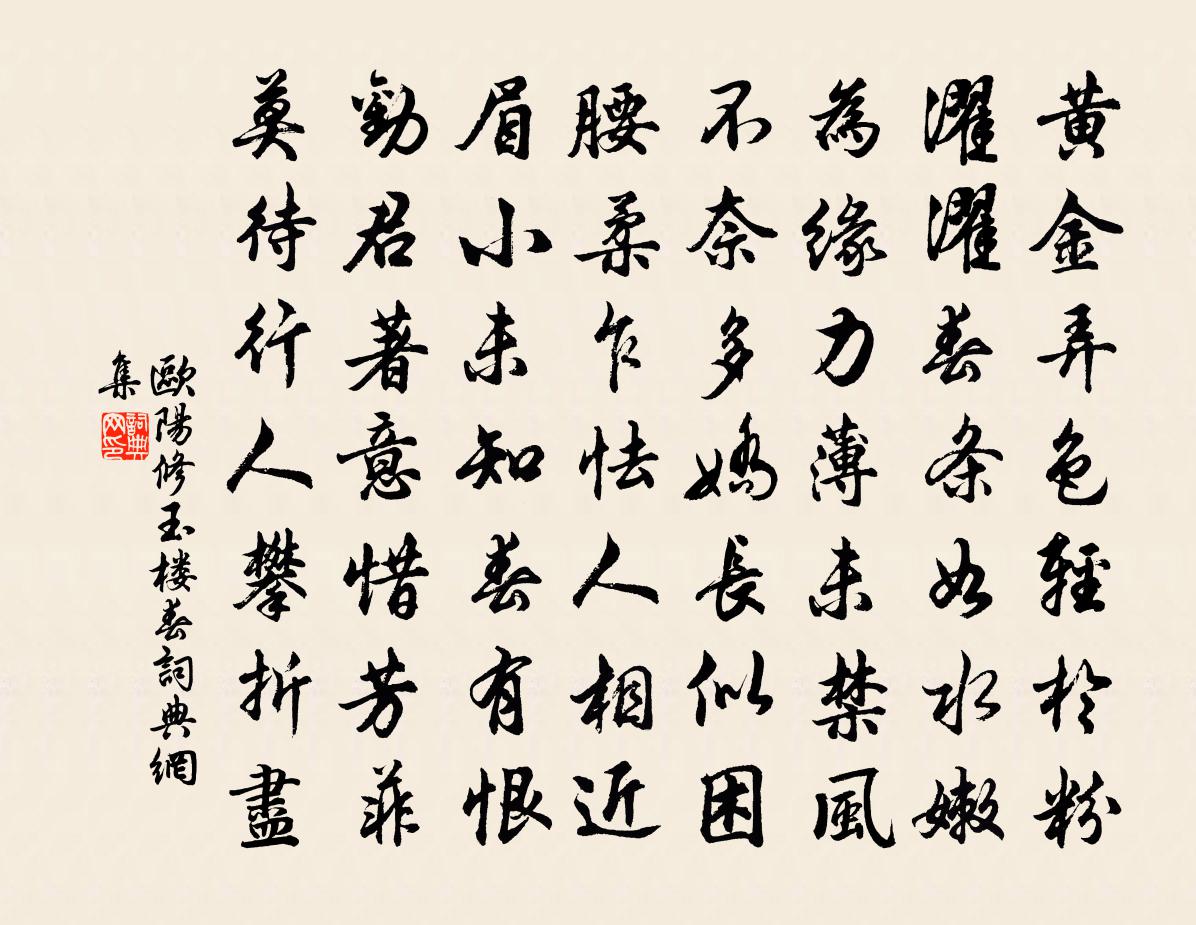 黃金弄色輕於粉
濯濯春条如水嫩
為緣力薄未禁風
不奈多嬌長似困
腰柔乍怯人相近
眉小未知春有恨
勸君著意惜芳菲
莫待行人攀折盡
歐陽修玉楼春詞典網
集
詞典
网印